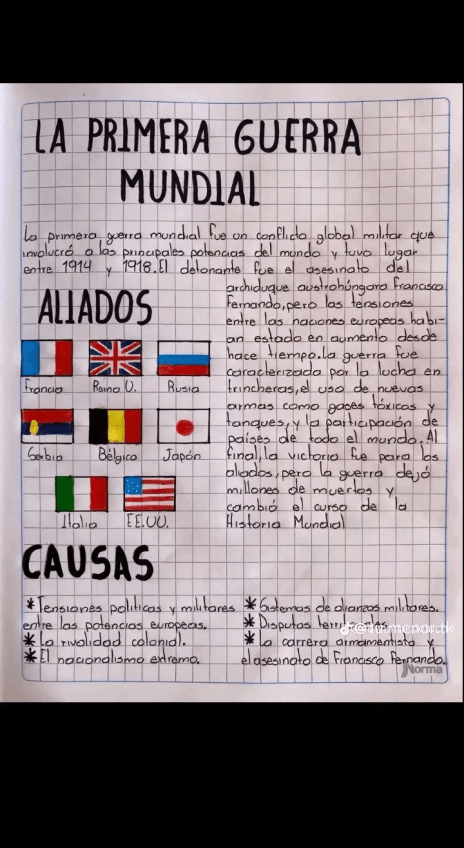 LA PRIMERA GUERRA
MUNDIAL
La primera guerra mundial fue un conflicto global militar que
involucró a las principales potencias del mundo y tuvo lugar
entre 1914 y 1918. El detonante fue el asesinato del
archiduque austrohúngaro Francisco
Fernando, pero las tensiones
entre las naciones europeas habi-
an estado en aumento desde
hace tiempo. La guerra fue
caracterizada por la lucha en
trincheras, el uso de nuevas
armas como gases tóxicos y
tanques, y la participación de
países de todo el mundo. Al
final, la victoria fue para los
aliados, pero la guerra dejó
millones de muertos y
cambió el curso de la
Historia Mundial
ALIADOS
Francia Reino U. Rusia
Serbia Bélgica Japón
Italia EE.UU.
CAUSAS
* Tensiones politicas y militares
entre las potencias europeas.
* La rivalidad colonial.
* El nacionalismo extremo.
* Sistemas de alianzas militares.
* Disputas
* La carrera armamentista y
el asesinato de Francisco Fernando.
Norma